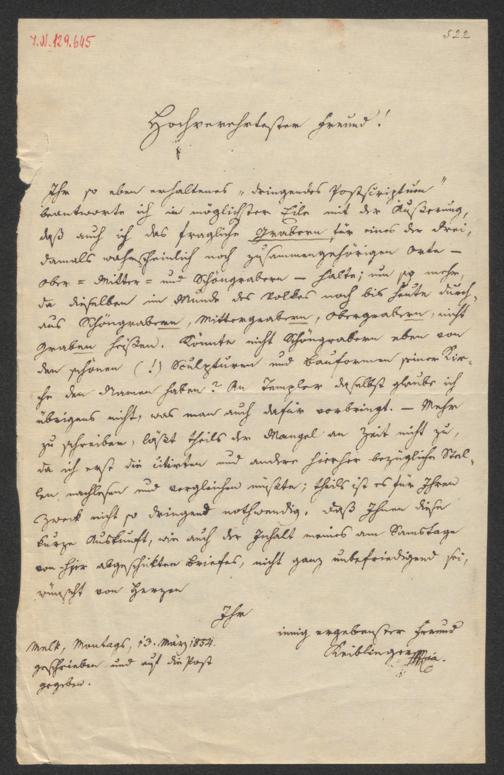 I.N. 129.645
522
Hochverehrtester Freund!
Ihr so eben erhaltenes „dringendes Postscriptum"
beantworte ich in möglichster Eile mit der Äußerung,
daß auch ich das fragliche Grabern für eines der drei,
damals wahrscheinlich noch zusammengehörigen Orte –
Ober= Mitter= und Schöngrabern – halte; um so mehr,
da dieselben im Munde des Volkes noch bis heute durch-
aus Schöngrabern, Mittergrabern, Obergrabern, nicht
Graben heißen. Könnte nicht Schöngrabern eben von
den schönen (!) Sculpturen und Bauformen seiner Kir-
che den Namen haben? An Templer daselbst glaube ich
übrigens nicht, was man auch dafür vorbringt. – Mehr
zu schreiben, läßt theils der Mangel an Zeit nicht zu,
da ich erst die citirten und andere hierher bezügliche Stel-
len, nachlesen und vergleichen müßte; theils ist es für Ihren
Zweck nicht so dringend nothwendig. Daß Ihnen diese
kurze Auskunft, wie auch der Inhalt meines am Samstage
von hier abgeschickten Briefes, nicht ganz unbefriedigend sei,
wünscht von Herzen
Ihr
innig ergebenster Freund
Keiblinger
Melk, Montags, 13. März 1854.
geschrieben und auf die Post
gegeben.